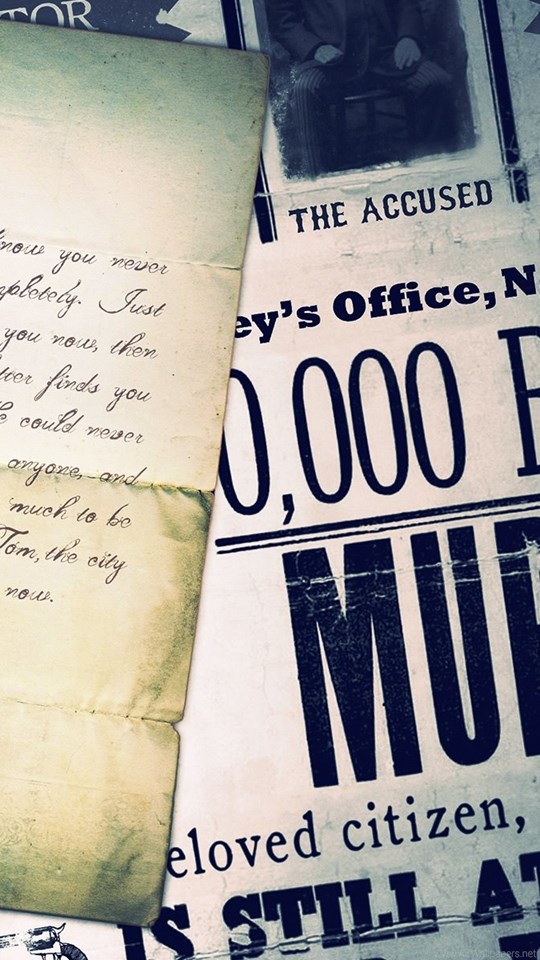 TOR
THE ACCUSED
ey's Office, N
0,000
MU
eloved citizen,
IS STILL AT
know you never
pletely. Just
you now, then
finds you
could never
anyone, and
much to be
Tom, the city
now.